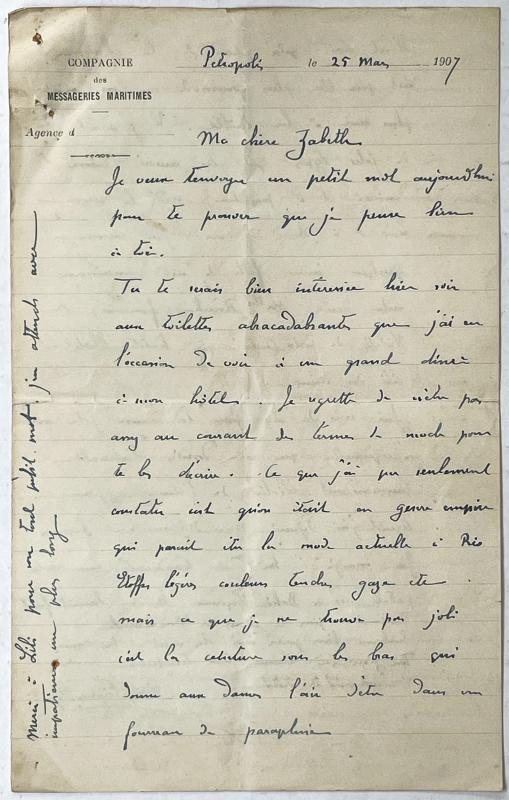 COMPAGNIE
des
MESSAGERIES MARITIMES
Agence d
Petropolis le 25 Mars 1907
Ma chère Zabeth
Je veux t'envoyer un petit mot aujourd'hui
pour te prouver que je pense bien
à toi.
Tu te serais bien intéressée hier soir
aux toilettes abracadabrantes que j'ai eu
l'occasion de voir à un grand dîner
à mon hôtel. Je regrette de n'être pas
assez au courant des termes de mode pour
te les décrire. Ce que j'ai pu seulement
constater c'est qu'on était en genre empire
qui paraît être la mode actuelle à Rio
Etoffes légères couleurs tendres gaze etc.
mais ce que je ne trouve pas joli
c'est la ceinture sous les bras qui
donne aux dames l'air d'être dans un
fourreau de parapluie
Merci à Lili pour son tout petit mot. j'en attends avec
impatience un plus long